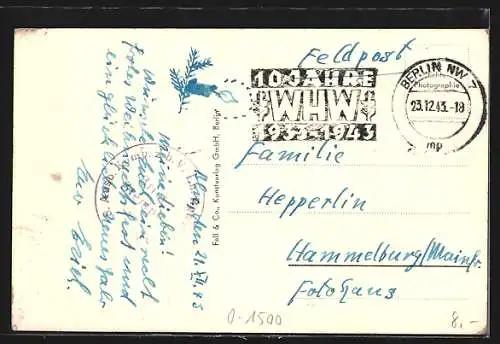 Feldpost
10 JAHRE
WHW
1933-1943
BERLIN NW 7
Photographie
23.12.43.-18
mp
Familie
Hepperlin
Hammelburg/Mainfr.
Fotohaus
Foll & Co., Kunstverlag GmbH, Berlin
den 21.XII.43
Meine Lieben!
Wünsche Euch ein recht
frohes Weihnachtsfest und
ein glückliches neues Jahr
Euer Erich.
0-1500
8.-